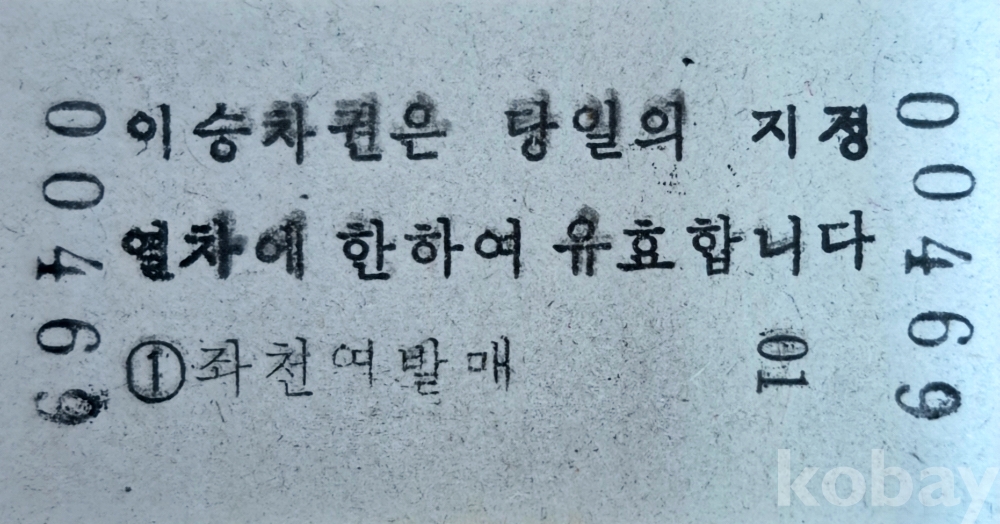 이 승차권은 당일의 지정
열차에 한하여 유효합니다
① 좌천여발매
01
00469
00469
kobay